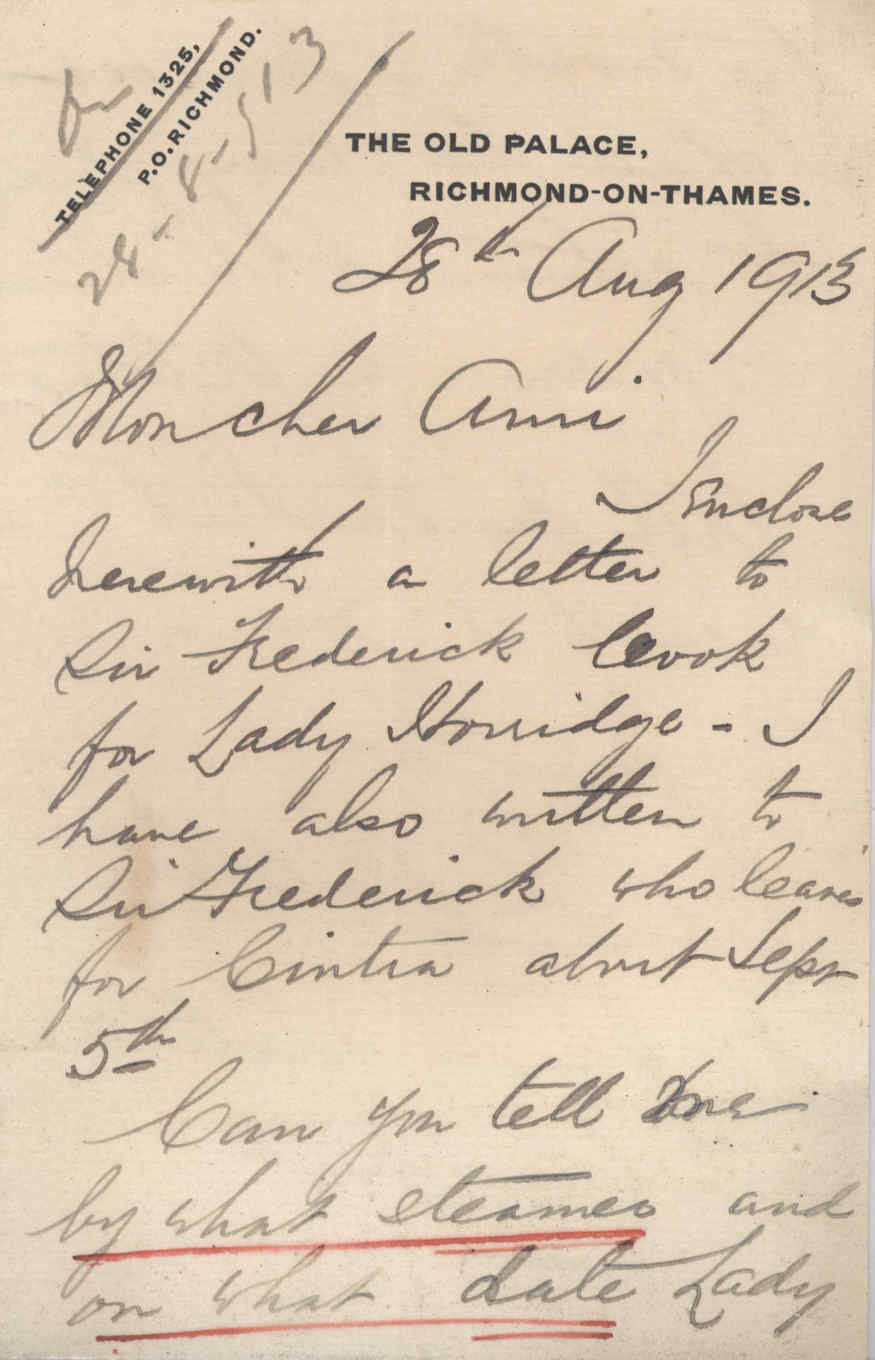 TELEPHONE 1325,
P.O. RICHMOND.
28-8-913
THE OLD PALACE,
RICHMOND-ON-THAMES.
28th Aug 1913
Mon cher Ami
I enclose
herewith a letter to
Sir Frederick Cook
for Lady Horridge - I
have also written to
Sir Frederick who leaves
for Cintra about Sepr
5th
Can you tell me
by what steamer and
on what date Lady